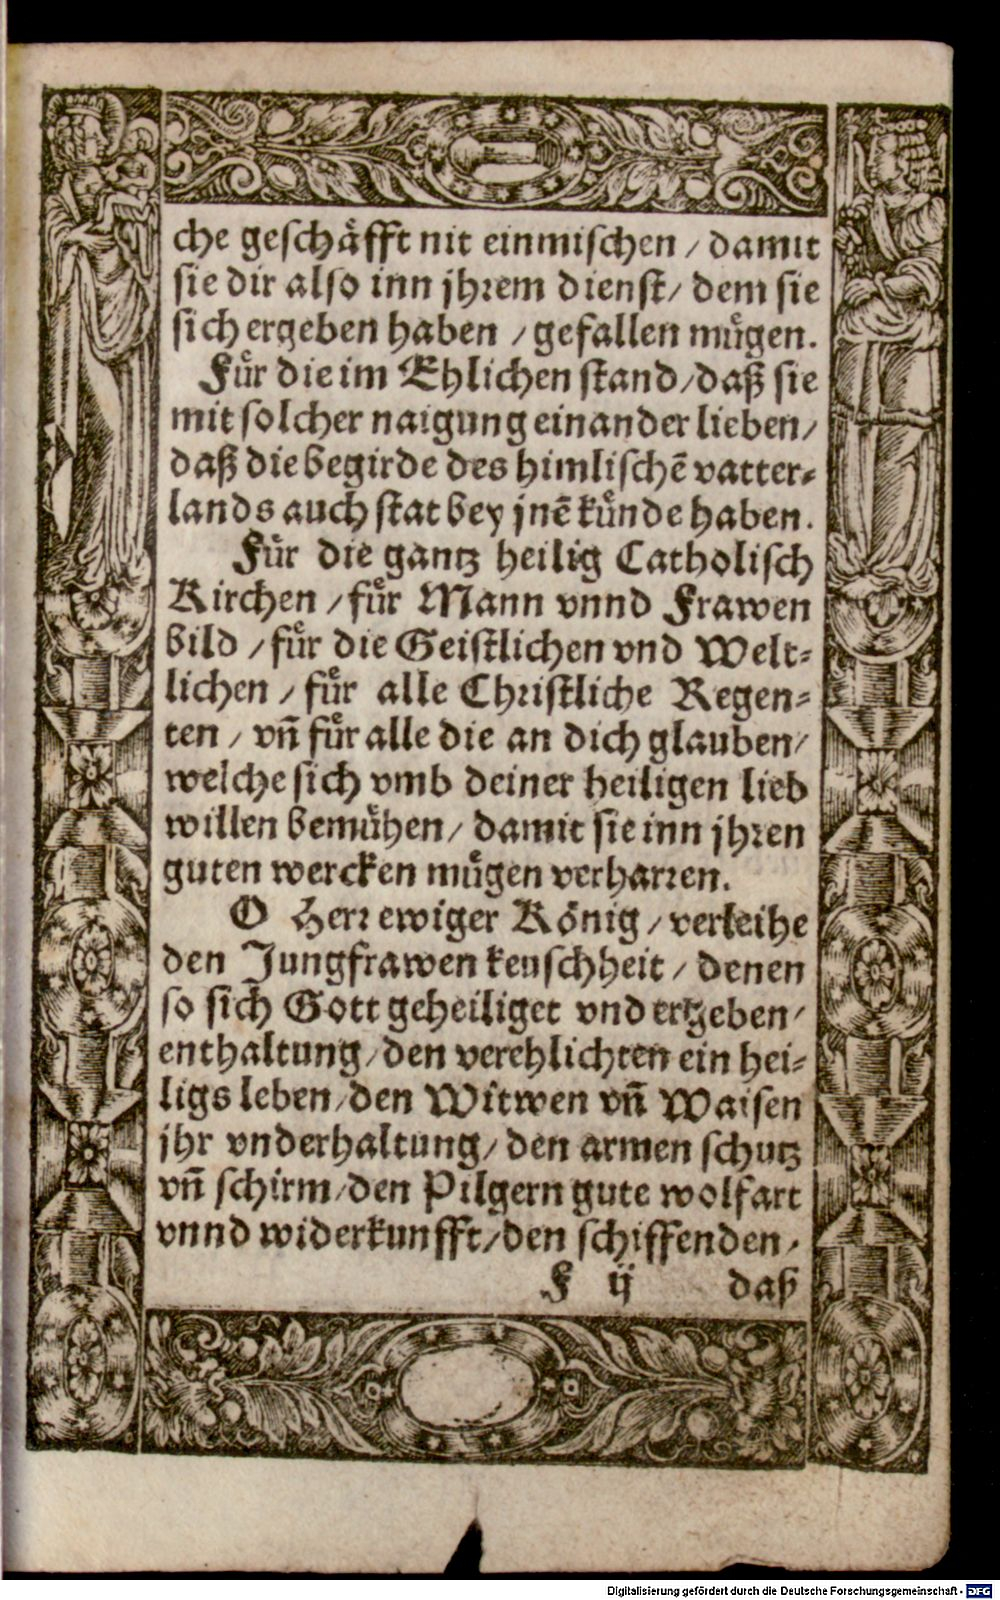 che geschäfft nit einmischen / damit
sie dir also inn jhrem dienst / dem sie
sich ergeben haben / gefallen mügen.
Für die im Ehlichen stand / daß sie
mit solcher naigung einander lieben /
daß die begirde des himlischẽ vatter⸗
lands auch stat bey jnẽ künde haben.
Für die gantz heilig Catholisch
Kirchen / für Mann vnnd Frawen
bild / für die Geistlichen vnd Welt⸗
lichen / für alle Christliche Regen⸗
ten / vñ für alle die an dich glauben /
welche sich vmb deiner heiligen lieb
willen bemühen / damit sie inn jhren
guten wercken mügen verharren.
O Herr ewiger König / verleihe
den Jungfrawen keuschheit / denen
so sich Gott geheiliget vnd ergeben /
enthaltung / den verehlichten ein hei⸗
ligs leben / den Witwen vñ Waisen
jhr vnderhaltung / den armen schutz
vñ schirm / den Pilgern gute wolfart
vnnd widerkunfft / den schiffenden /
F ij daß
Digitalisierung gefördert durch die Deutsche Forschungsgemeinschaft - DFG